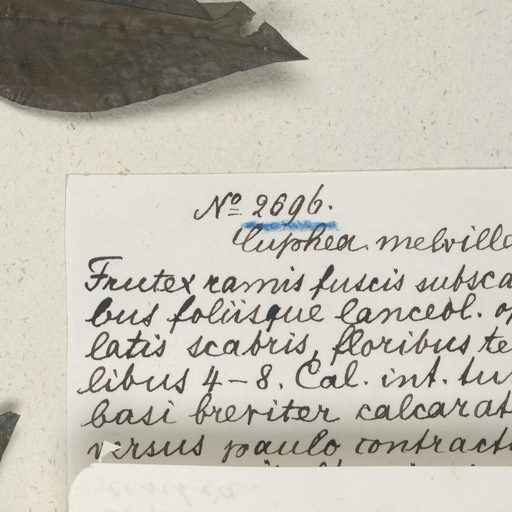 No 2696.
Cuphea. melville
Frutex ramis fuscis subsca
bus foliisque lanceol. op
latis scabris, floribus te
libus 4-8. Cal. int. tu
basi breviter calcarat
versus paulo contract